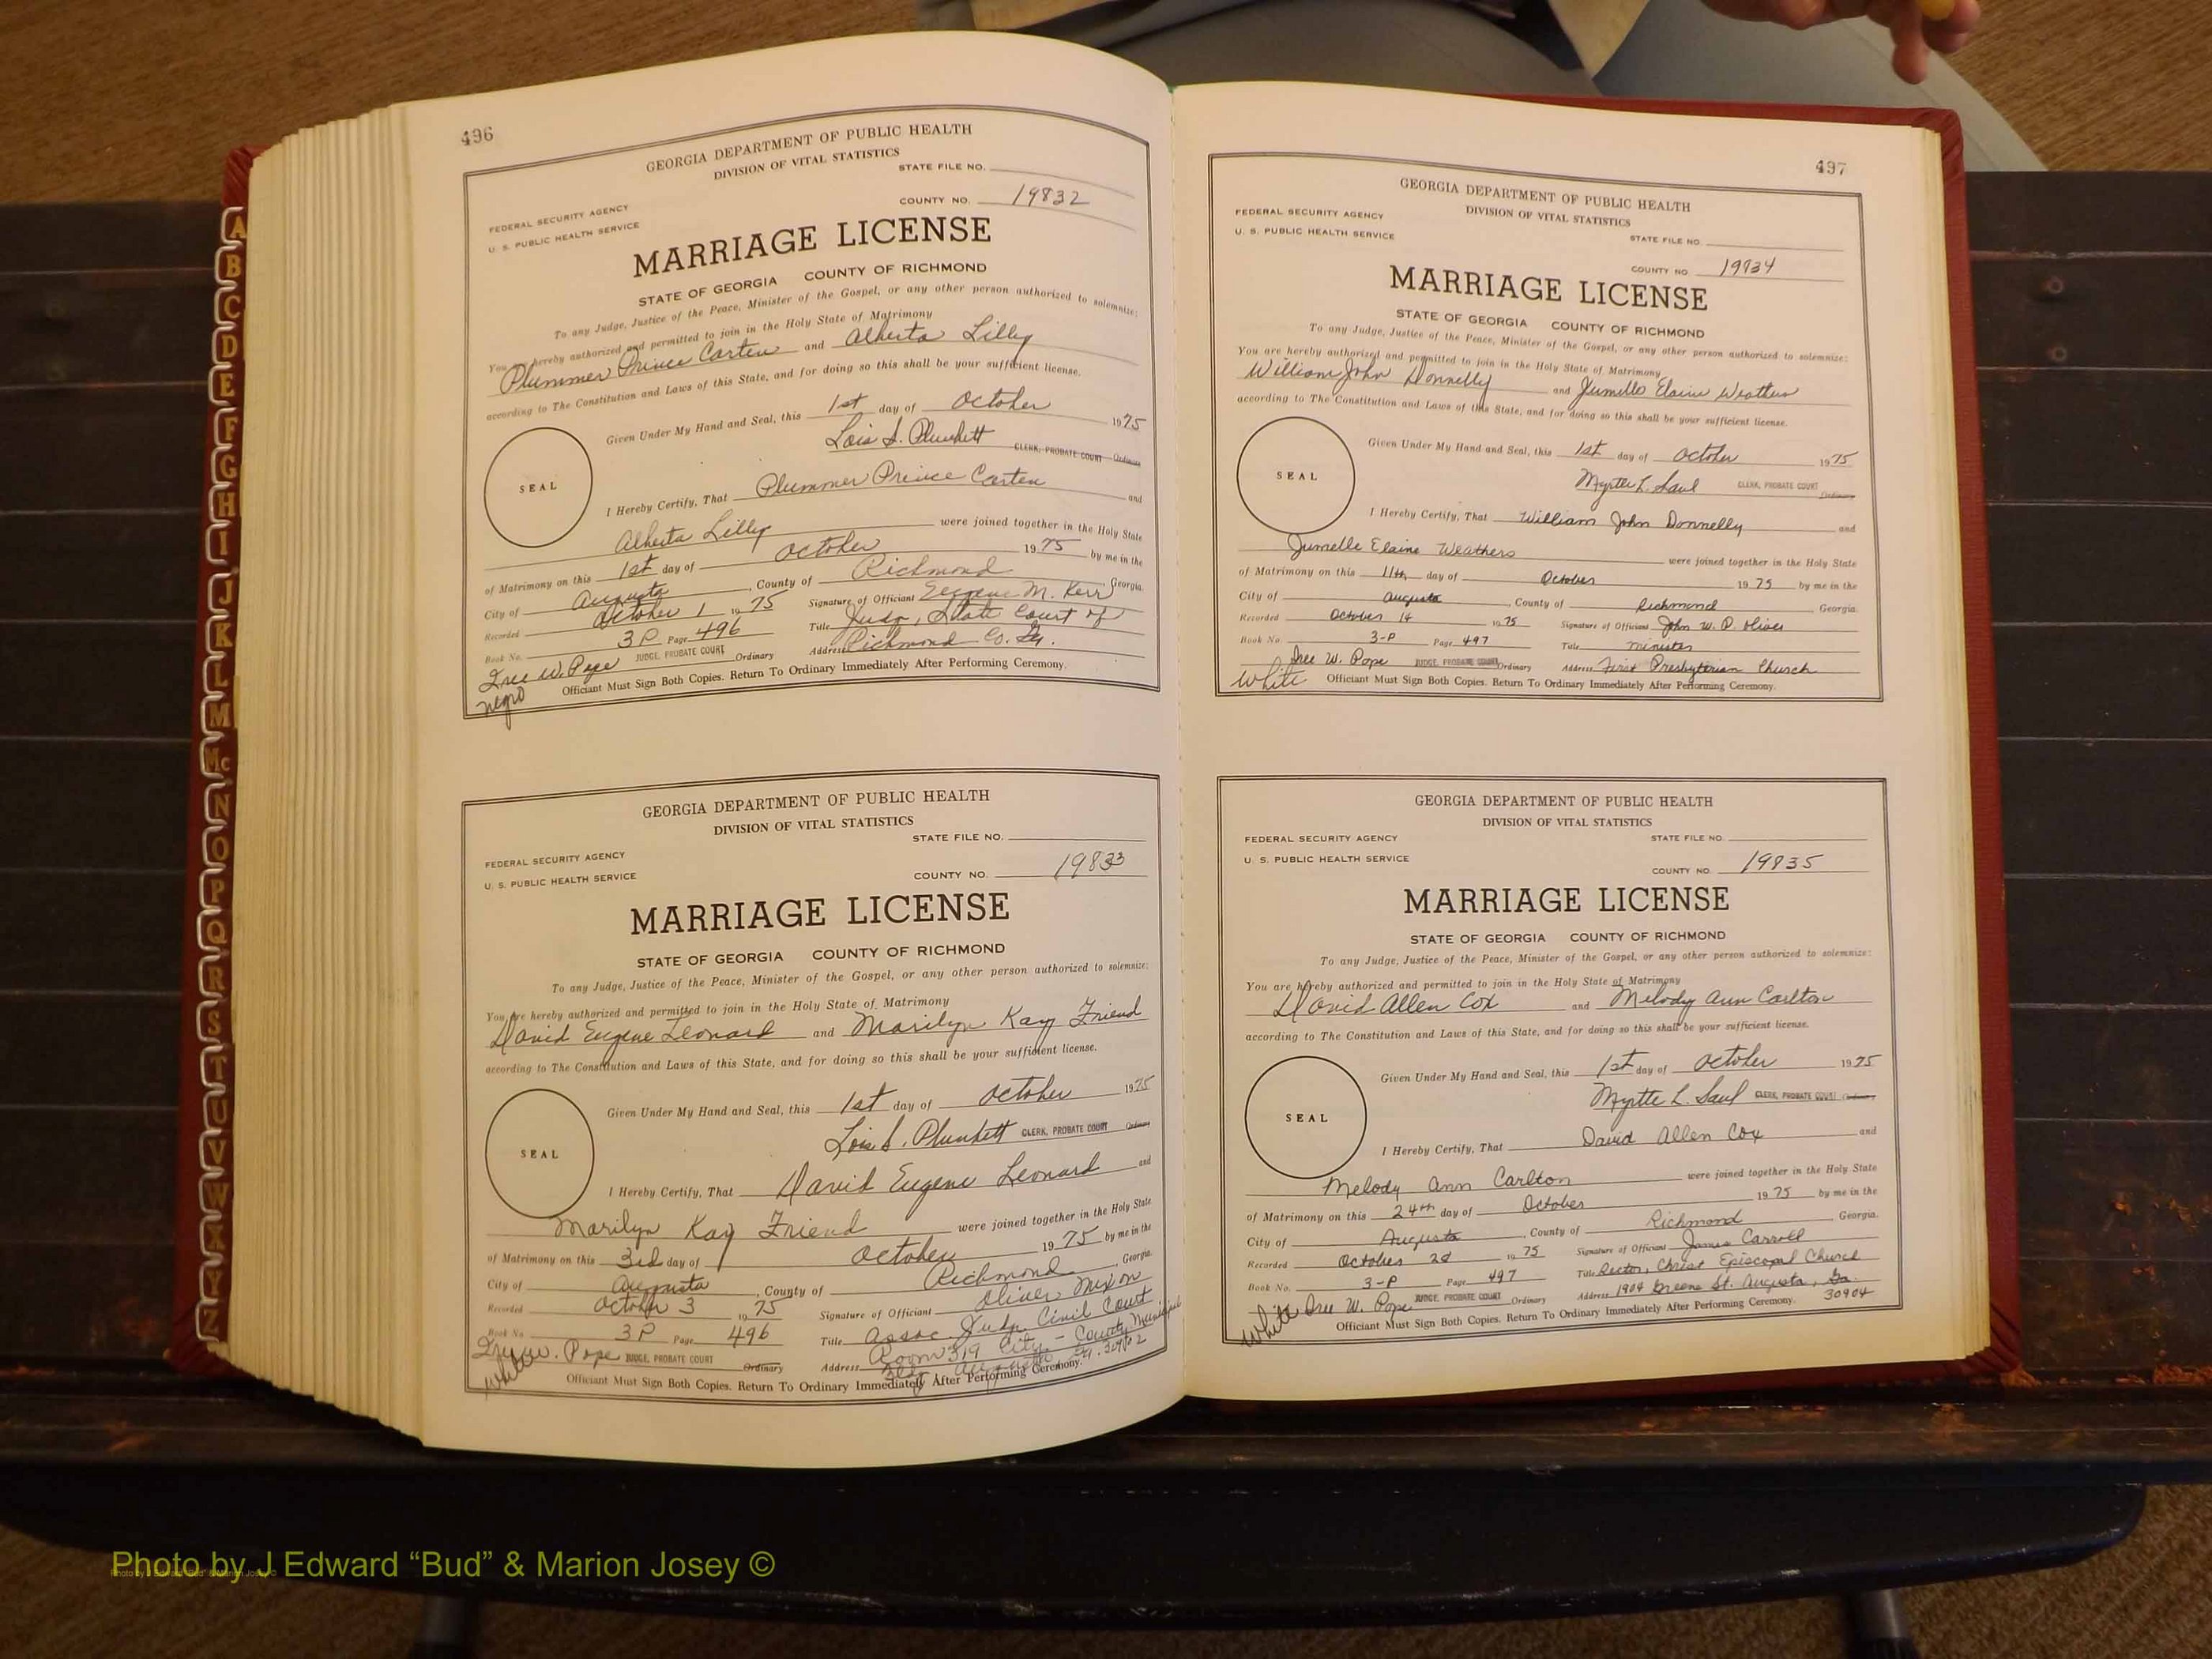 496
GEORGIA DEPARTMENT OF PUBLIC HEALTH
DIVISION OF VITAL STATISTICS
STATE FILE NO.
FEDERAL SECURITY AGENCY
U. S. PUBLIC HEALTH SERVICE
COUNTY NO. 19832
MARRIAGE LICENSE
STATE OF GEORGIA COUNTY OF RICHMOND
To any Judge, Justice of the Peace, Minister of the Gospel, or any other person authorized to solemnize:
You are hereby authorized and permitted to join in the Holy State of Matrimony
Plummer Prince Carter and Alberta Lilly
according to The Constitution and Laws of this State, and for doing so this shall be your sufficient license.
Given Under My Hand and Seal, this 1st day of October 1975
Lois S. Plunkett CLERK, PROBATE COURT Ordinary
SEAL
I Hereby Certify, That Plummer Prince Carter and
Alberta Lilly were joined together in the Holy State
of Matrimony on this 1st day of October 1975 by me in the
City of Augusta, County of Richmond, Georgia.
Recorded October 1 1975 Signature of Officiant Eugene M. Kerr
Book No. 3P Page 496 Title Judge, State Court of
Richmond Co. Ga.
Address
Iree W. Pope JUDGE, PROBATE COURT Ordinary
Officiant Must Sign Both Copies. Return To Ordinary Immediately After Performing Ceremony.
negro
GEORGIA DEPARTMENT OF PUBLIC HEALTH
DIVISION OF VITAL STATISTICS
STATE FILE NO.
FEDERAL SECURITY AGENCY
U. S. PUBLIC HEALTH SERVICE
COUNTY NO. 19833
MARRIAGE LICENSE
STATE OF GEORGIA COUNTY OF RICHMOND
To any Judge, Justice of the Peace, Minister of the Gospel, or any other person authorized to solemnize:
You are hereby authorized and permitted to join in the Holy State of Matrimony
David Eugene Leonard and Marilyn Kay Friend
according to The Constitution and Laws of this State, and for doing so this shall be your sufficient license.
Given Under My Hand and Seal, this 1st day of October 1975
Lois S. Plunkett CLERK, PROBATE COURT Ordinary
SEAL
I Hereby Certify, That David Eugene Leonard and
Marilyn Kay Friend were joined together in the Holy State
of Matrimony on this 3rd day of October 1975 by me in the
City of Augusta, County of Richmond, Georgia.
Recorded October 3 1975 Signature of Officiant Oliver Mixon
Book No. 3P Page 496 Title Assoc. Judge Civil Court
Room 319 City - County Municipal
Iree W. Pope JUDGE, PROBATE COURT Ordinary Address
Officiant Must Sign Both Copies. Return To Ordinary Immediately After Performing Ceremony.
white
497
GEORGIA DEPARTMENT OF PUBLIC HEALTH
DIVISION OF VITAL STATISTICS
FEDERAL SECURITY AGENCY
U. S. PUBLIC HEALTH SERVICE
STATE FILE NO.
COUNTY NO. 19834
MARRIAGE LICENSE
STATE OF GEORGIA COUNTY OF RICHMOND
To any Judge, Justice of the Peace, Minister of the Gospel, or any other person authorized to solemnize:
You are hereby authorized and permitted to join in the Holy State of Matrimony
William John Donnelly and Jumelle Elaine Weathers
according to The Constitution and Laws of this State, and for doing so this shall be your sufficient license.
Given Under My Hand and Seal, this 1st day of October 1975
Myrtle L. Saul CLERK, PROBATE COURT Ordinary
SEAL
I Hereby Certify, That William John Donnelly and
Jumelle Elaine Weathers were joined together in the Holy State
of Matrimony on this 11th day of October 1975 by me in the
City of Augusta, County of Richmond Georgia.
Recorded October 14 1975 Signature of Officiant John W. P. Oliver
Book No. 3-P Page 497 Title minister
Iree W. Pope JUDGE, PROBATE COURT Ordinary Address First Presbyterian Church
white Officiant Must Sign Both Copies. Return To Ordinary Immediately After Performing Ceremony.
GEORGIA DEPARTMENT OF PUBLIC HEALTH
DIVISION OF VITAL STATISTICS
FEDERAL SECURITY AGENCY
STATE FILE NO.
U. S. PUBLIC HEALTH SERVICE
COUNTY NO. 19835
MARRIAGE LICENSE
STATE OF GEORGIA COUNTY OF RICHMOND
To any Judge, Justice of the Peace, Minister of the Gospel, or any other person authorized to solemnize:
You are hereby authorized and permitted to join in the Holy State of Matrimony
David Allen Cox and Melody Ann Carlton
according to The Constitution and Laws of this State, and for doing so this shall be your sufficient license.
Given Under My Hand and Seal, this 1st day of October 1975
Myrtle L. Saul CLERK, PROBATE COURT Ordinary
SEAL
I Hereby Certify, That David Allen Cox and
Melody Ann Carlton were joined together in the Holy State
of Matrimony on this 24th day of October 1975 by me in the
City of Augusta, County of Richmond Georgia.
Recorded October 1975 Signature of Officiant James Carroll
Book No. 3-P Page 497 Title Rector, Christ Episcopal Church
Iree W. Pope JUDGE, PROBATE COURT Ordinary Address 1904 Greene St. Augusta, Ga.
30904
white Officiant Must Sign Both Copies. Return To Ordinary Immediately After Performing Ceremony.
A
B
C
D
E
F
G
H
I
J
K
L
M
Mc
N
O
P
Q
R
S
T
U
V
W
X
Y
Z
Photo by J Edward “Bud” & Marion Josey ©
Photo by J Edward "Bud" & Marion Josey ©